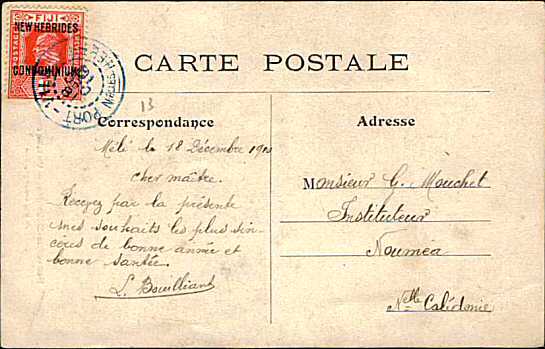 FIJI
NEW HEBRIDES
POSTAGE
CONDOMINIUM
PORT-VILA
CARTE POSTALE
13
Correspondance
Adresse
Mélé le 18 Décembre 1910
Cher maître.
Recevez par la présente
mes souhaits les plus sin-
cères de bonne année et
bonne santée.
L. Bouilliant
Monsieur G. Mouchet
Instituteur
Nouméa
Nelle Calédonie